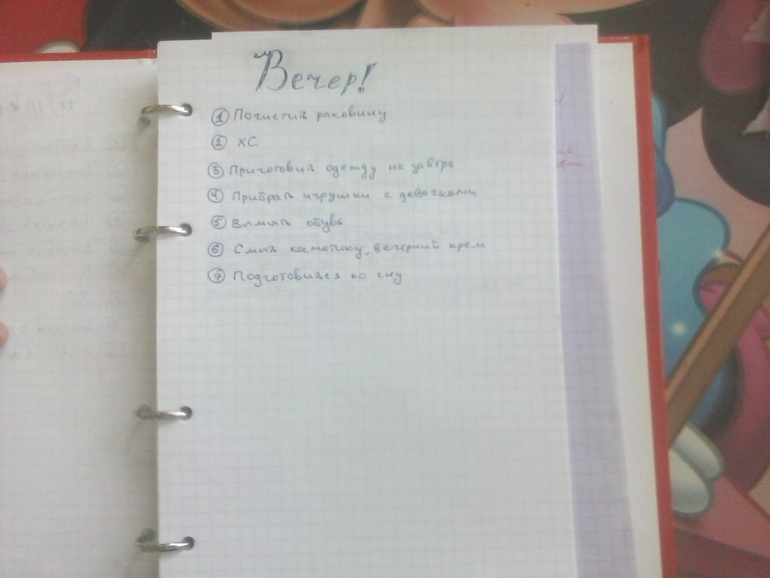 Вечер!
① Почистить раковину
② ХС
③ Приготовить одежду на завтра
④ Прибрать игрушки с девочками
⑤ Вымыть обувь
⑥ Смыть косметику, вечерний крем
⑦ Подготовиться ко сну